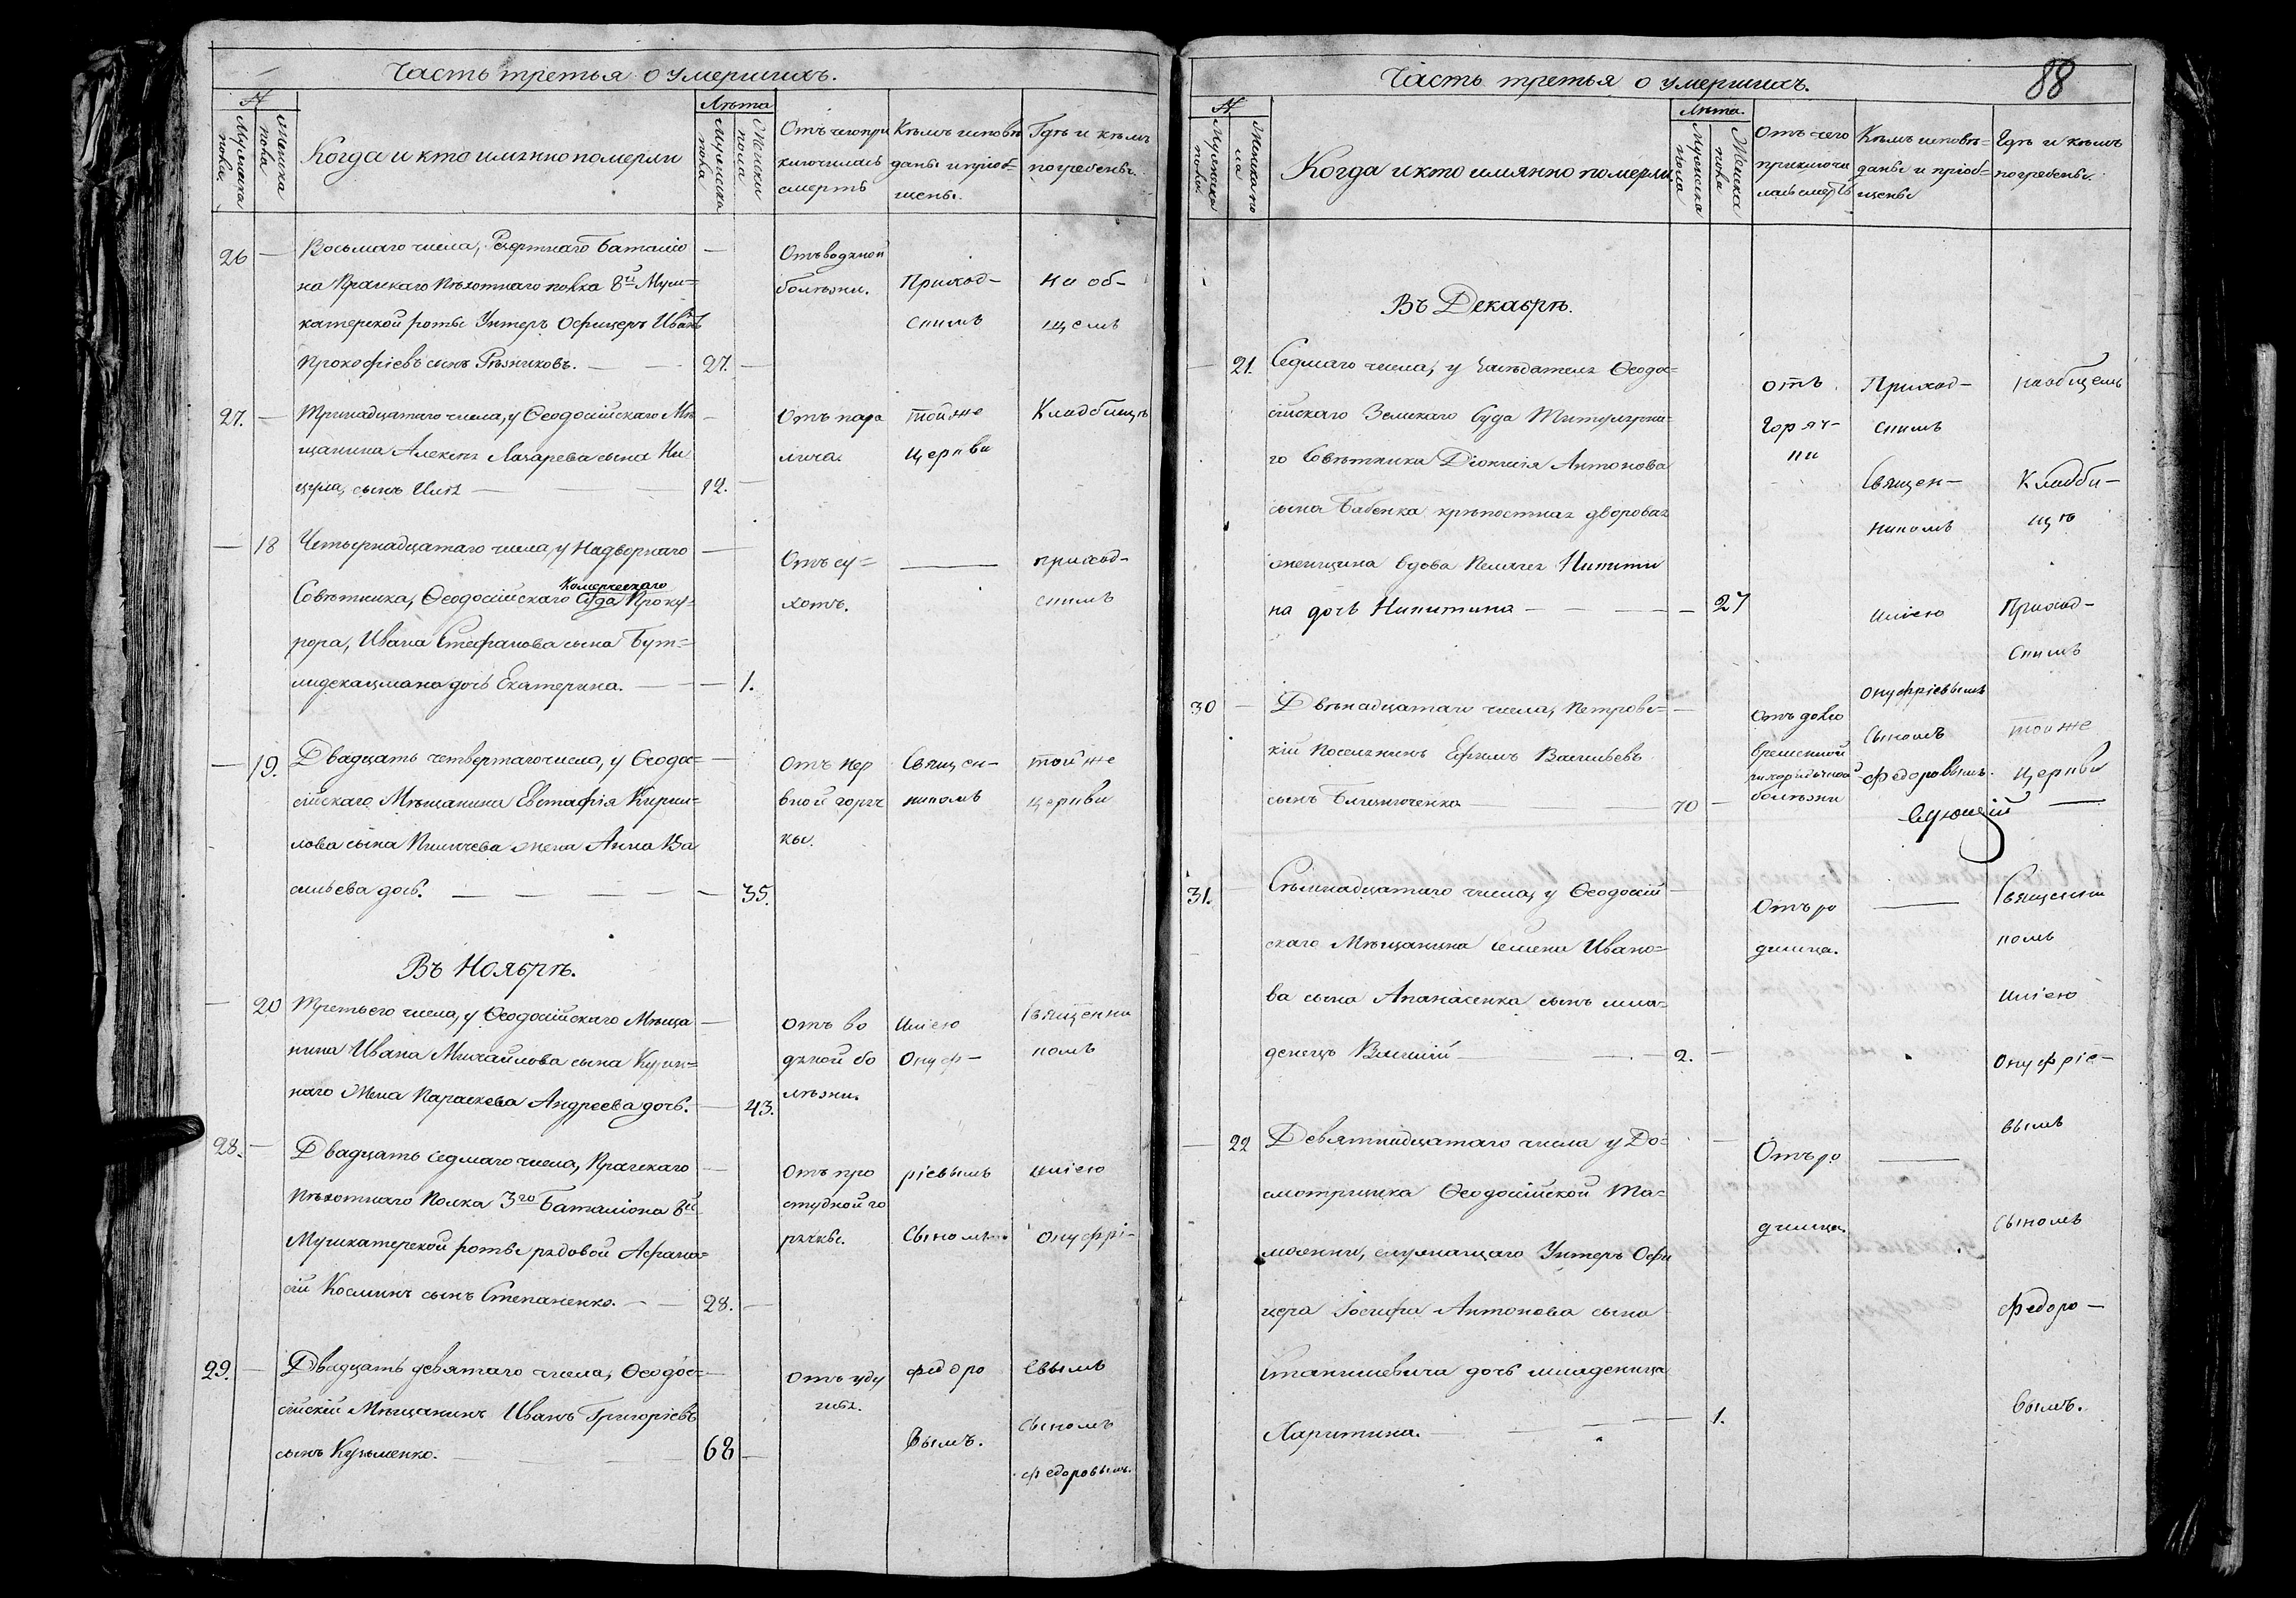 Часть третья о умершихъ.
№
Мужеска пола.
Женска пола
Когда и кто именно померли
Лѣта
Мужеска пола
Женска пола
Отъ чего при
ключилась
смерть
Кѣмъ исповѣ
даны и пріоб=
щены.
Гдѣ и кѣмъ
погребены.
26 — Восьмаго числа, Резертнаго Баталіо —
на Пражскаго Пѣхотнаго полка 8й Муш=
катерской роты Унтеръ Офицеръ Иванъ
Прокофіевъ сынъ Рѣзниковъ. — — 27. —
Отъ водяной
болѣзни.
Приход-
скимъ
На об-
щемъ
27. — Тринадцатаго числа, у Ѳеодосійскаго Мѣ —
щанина Алексѣя Лазарева сына Ки
цула, сынъ Илія — — — 12. —
Отъ пара
лича.
той же
церкви
Кладбищѣ
— 18 Четырнадцатаго числа, у Надворнаго —
Совѣтника, Ѳеодосійскаго Комерческаго Суда Проку=
рора, Ивана Стефанова сына Бут=
мидекацмана дочь Екатерина. — — — 1.
Отъ су=
хотъ.
—
приход-
скимъ
— 19. Двадцать четвертаго числа, у Ѳеодо= —
сійскаго Мѣщанина Евстафія Кирил=
лова сына Пиличева жена Анна Ва
сильева дочь. — — — — — 35.
Отъ нер
вной горяч
ки.
Священ-
никомъ
той же
церкви
Въ Ноябрѣ.
— 20 Третьего числа, у Ѳеодосійскаго Мѣща —
нина Ивана Михайлова сына
жена Параскева Андреева дочь. — 43.
Отъ во
дяной бо
лѣзни.
Иліею
Онуф-
Священни
комъ
28. — Двадцать седмаго числа, Пражскаго —
Пѣхотнаго Полка 3го Баталіона 8й
Мушкатерской роты рядовой Афана=
сій Косминъ сынъ Степаненко. — — 28. —
Отъ про
студной го
рячки.
ріевымъ
Сыномъ
Иліею
Онуфрі-
29. — Двадцать девятаго числа, Ѳеодос= —
сійскій Мѣщанинъ Иванъ Григоріевъ
сынъ Кузьменко. — — — 68 —
Отъ уду
шья.
Федоро
вымъ.
евымъ
Сыномъ
Федоровымъ.
Часть третья о умершихъ.
88
№
Мужеска пола
Женска по
ла
Когда и кто имянно померли
Лѣта.
Мужеска пола
Женска пола
Отъ чего
приключи
лась смерть
Кѣмъ исповѣ=
даны и пріоб=
щены
Гдѣ и кѣмъ
погребены.
Въ Декабрѣ.
— 21. Седмаго числа, у Засѣдателя Ѳеодо=
сійскаго Земскаго Суда Титулярна=
го Совѣтника Діонисія Антонова
сына Бабенка крѣпостная дворовая
женщина вдова Пелагея Никити
на дочь Никитина — — — — 27
отъ
Горяч-
ки
Приход-
скимъ
Священ-
никомъ
Иліею
Онуфріевымъ
Сыномъ
Федоровымъ.
на общемъ
Кладби-
щѣ
Приход-
скимъ
той же
церкви
—
30 — Двѣнадцатаго числа, Петровс= —
кій Поселянинъ Ефимъ Васильевъ
сынъ — 70 —
Отъ долго
временной
болѣзни
31. — Семнадцатаго числа, у Ѳеодосій —
скаго Мѣщанина Семена Ивано=
ва сына Апанасенка сынъ мла=
денецъ Василій — — 2. —
Отъ ро
димца.
—
Священни
комъ
Иліею
Онуфріе-
вымъ
— 22 Девятнадцатаго числа у До= —
смотрщика Ѳеодосійской Та=
можни, служащаго Унтеръ Офи
цера Іосифа Антонова сына
Станишевича дочь младеница
Харитина. — — — 1.
Отъ ро
димца.
—
Сыномъ
Федоро-
вымъ.